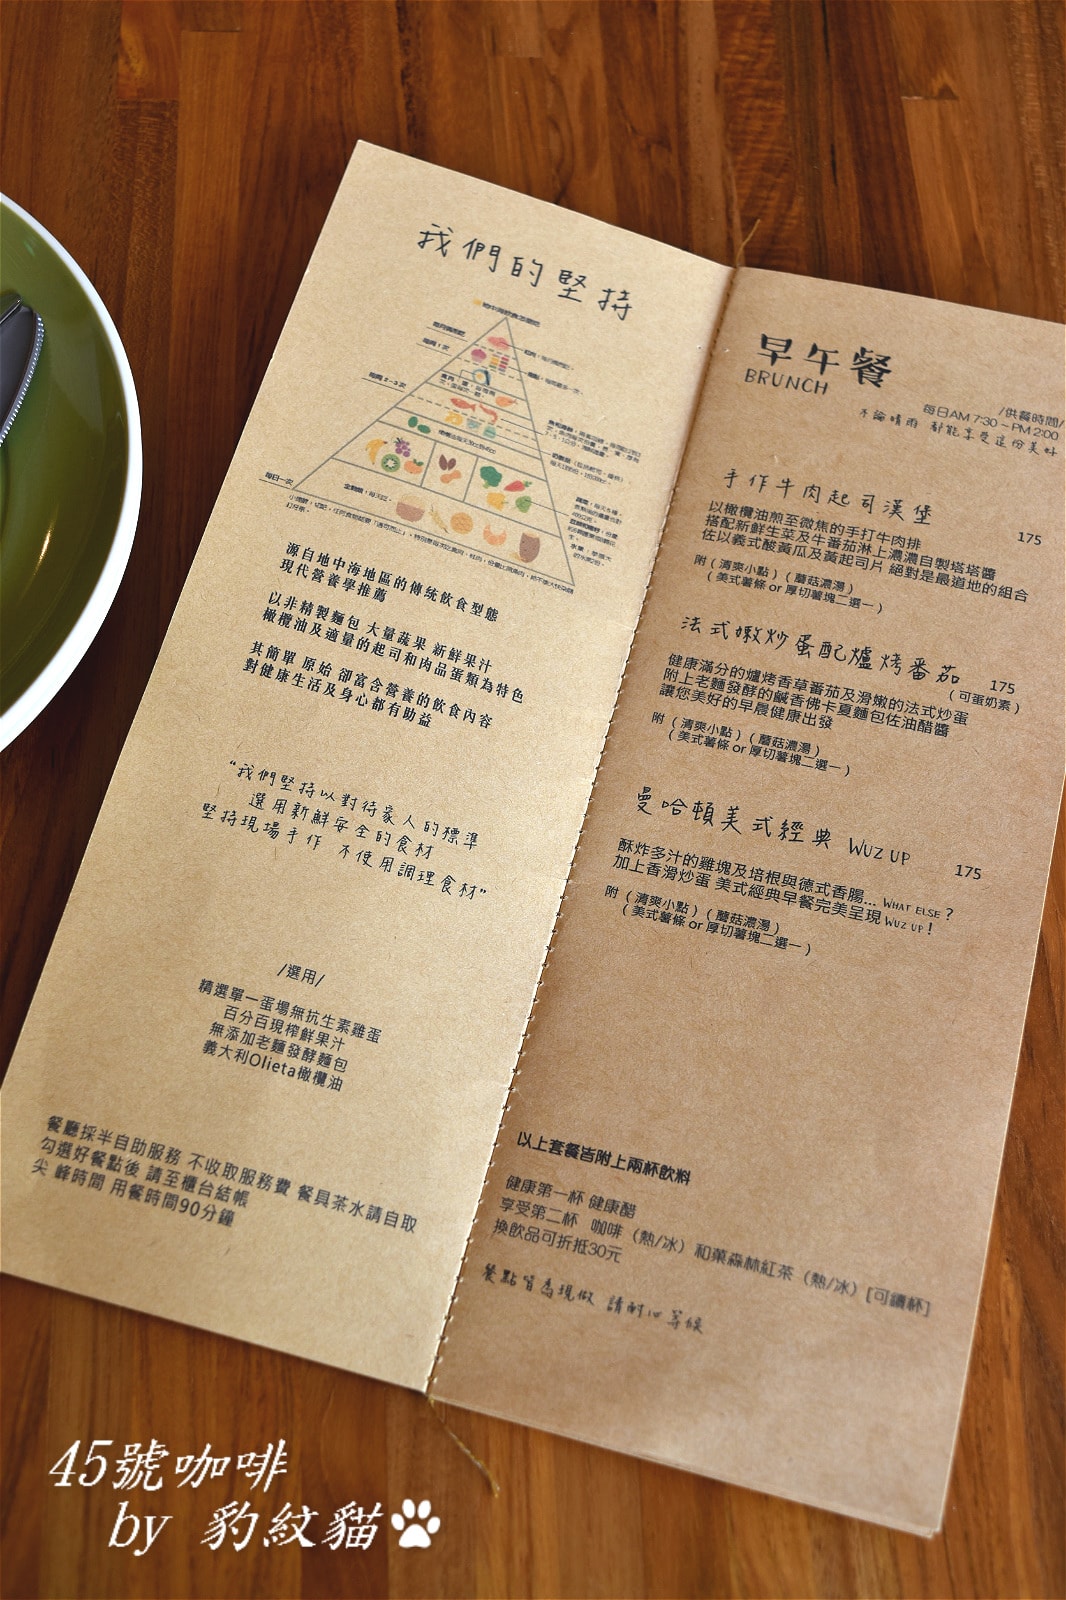 我們的堅持
地中海飲食金字塔
每月偶爾吃
每周1次
每周2-3次
每日一次
源自地中海地區的傳統飲食型態
現代營養學推薦
以非精製麵包 大量蔬果 新鮮果汁
橄欖油及適量的起司和肉品蛋類為特色
其簡單 原始 卻富含營養的飲食內容
對健康生活及身心都有助益
“我們堅持以對待家人的標準
選用新鮮安全的食材
堅持現場手作 不使用調理食材”
/選用/
精選單一蛋場無抗生素雞蛋
百分百現榨鮮果汁
無添加老麵發酵麵包
義大利Olieta橄欖油
餐廳採半自助服務 不收取服務費 餐具茶水請自取
勾選好餐點後 請至櫃台結帳
尖 峰時間 用餐時間90分鐘
早午餐
BRUNCH
/供餐時間/
每日AM 7:30 ~ PM 2:00
不論晴雨 都能享受這份美好
手作牛肉起司漢堡 175
以橄欖油煎至微焦的手打牛肉排
搭配新鮮生菜及牛番茄淋上濃濃自製塔塔醬
佐以義式酸黃瓜及黃起司片 絕對是最道地的組合
附（清爽小點）（蘑菇濃湯）
（美式薯條 or 厚切薯塊二選一）
法式嫩炒蛋配爐烤番茄 175
（可蛋奶素）
健康滿分的爐烤香草番茄及滑嫩的法式炒蛋
附上老麵發酵的鹹香佛卡夏麵包佐油醋醬
讓您美好的早晨健康出發
附（清爽小點）（蘑菇濃湯）
（美式薯條 or 厚切薯塊二選一）
曼哈頓美式經典 WUZ UP 175
酥炸多汁的雞塊及培根與德式香腸... WHAT ELSE？
加上香滑炒蛋 美式經典早餐完美呈現 WUZ UP！
附（清爽小點）（蘑菇濃湯）
（美式薯條 or 厚切薯塊二選一）
以上套餐皆附上兩杯飲料
健康第一杯 健康醋
享受第二杯 咖啡（熱/冰）和菓森林紅茶（熱/冰）[可續杯]
換飲品可折抵30元
餐點皆為現做 請耐心等候
45號咖啡
by 豹紋貓